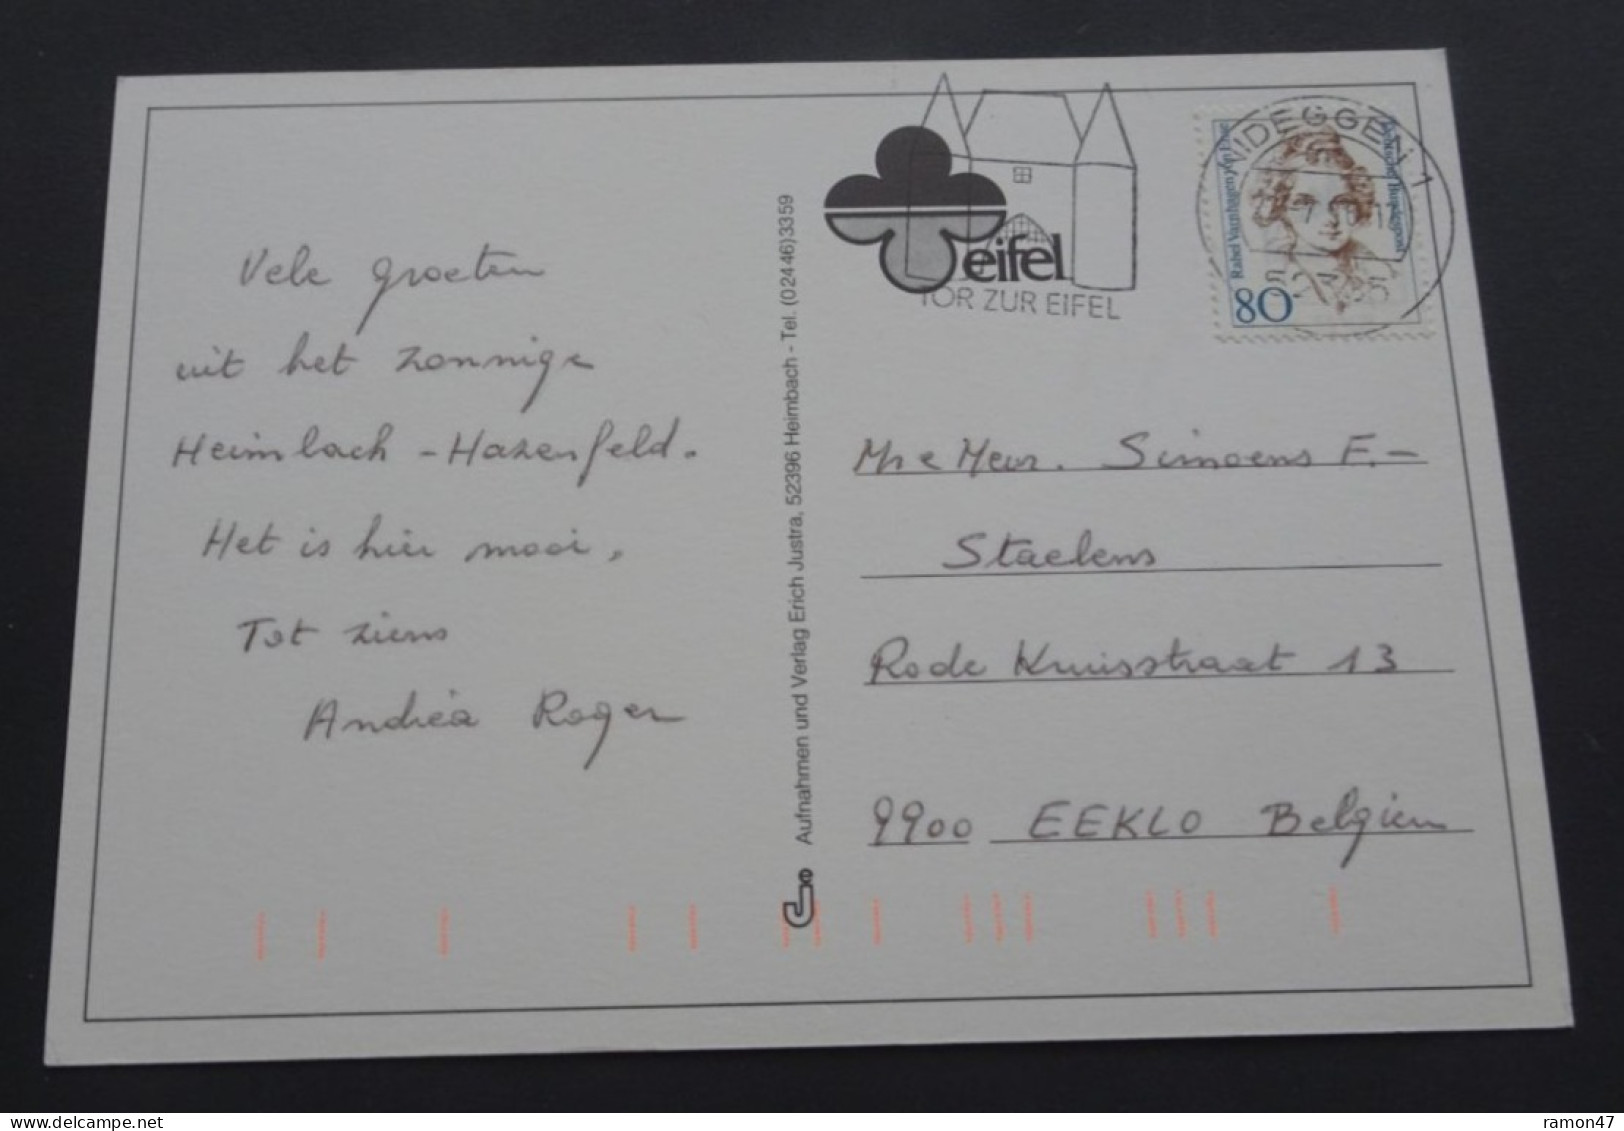 Vele groeten
uit het zonnige
Heimbach - Hazenfeld.
Het is hier mooi.
Tot ziens
Andréa Roger
Aufnahmen und Verlag Erich Justra, 52396 Heimbach - Tel. (02446)3359
eifel
TOR ZUR EIFEL
NIDEGGEN 1
52385
Rahel Varnhagen von Ense
Deutsche Bundespost
80
Mr e Mevr. Simoens F.-
Staelens
Rode Kruisstraat 13
9900 EEKLO Belgien
delcampe.net
ramon47